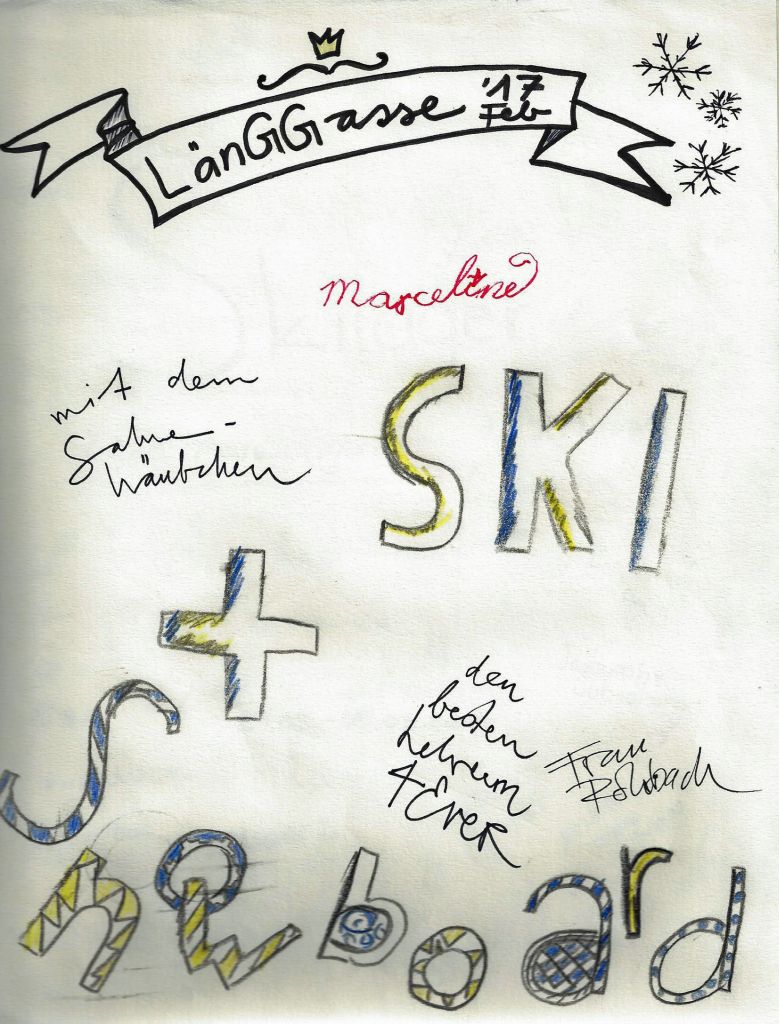 LänGGasse '17
Feb
Marceline
mit dem
Sahne-
häubchen
SKI
+
Snowboard
den
besten
Lehrern
4 EveR
Frau